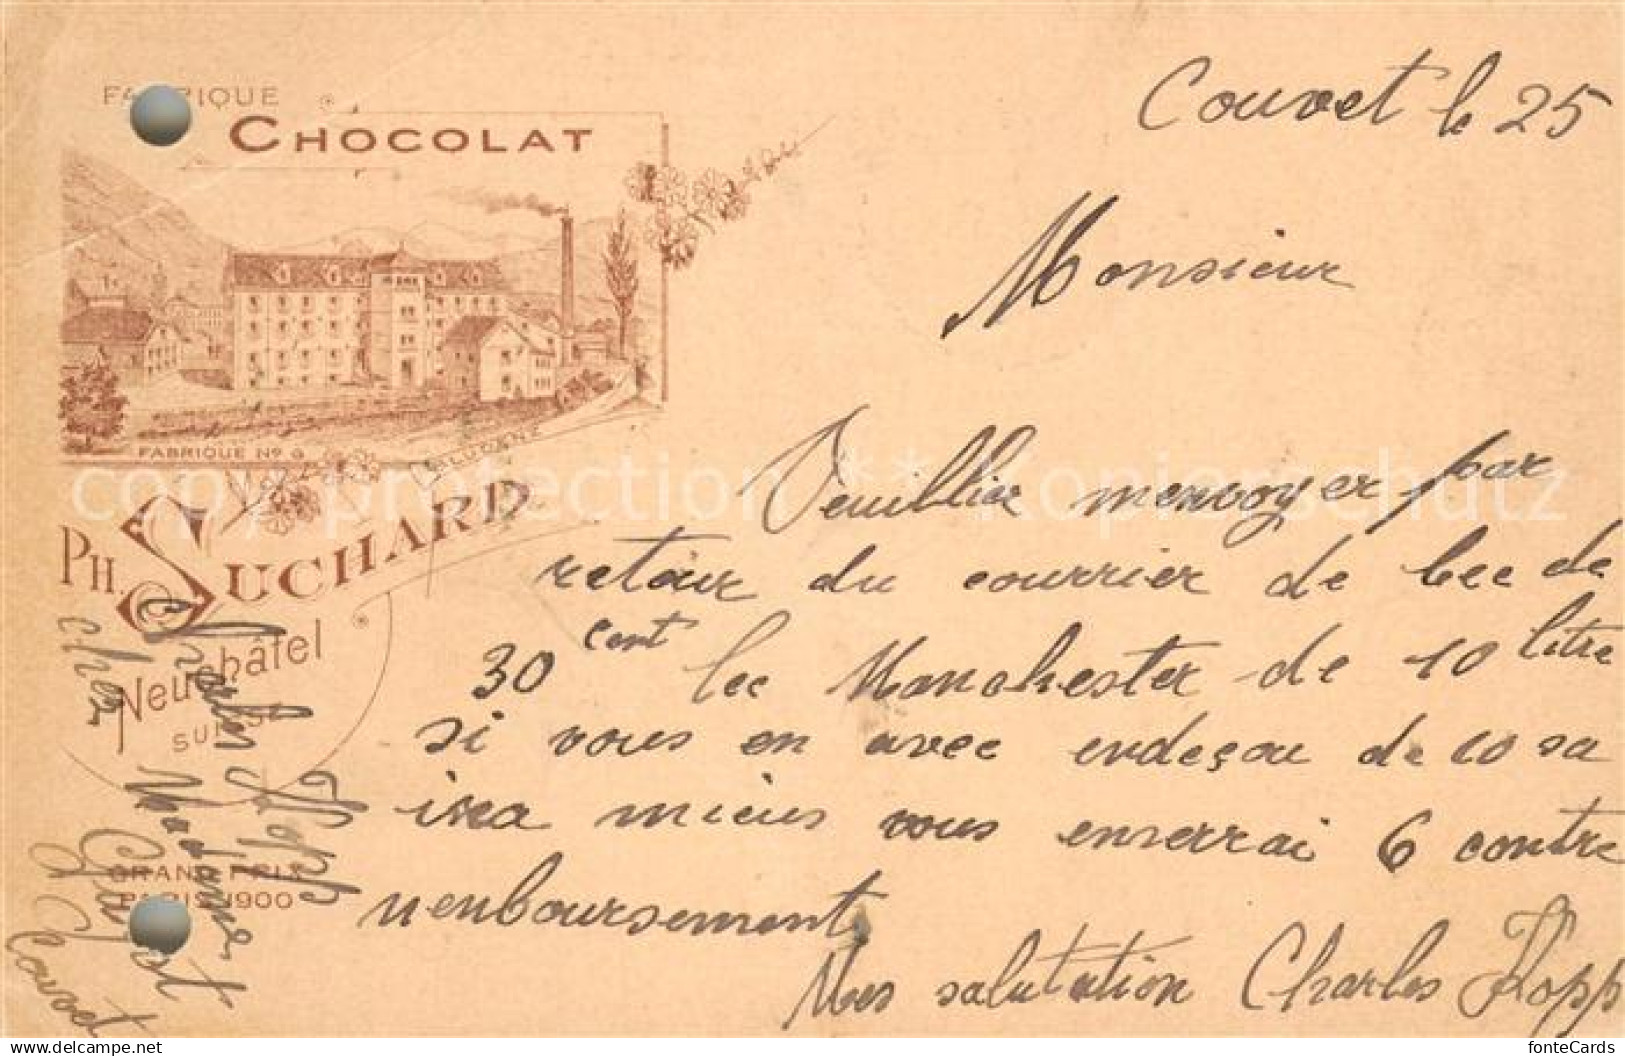 FABRIQUE
CHOCOLAT
FABRIQUE Nº 6
PH. SUCHARD
Neuchâtel
SUISSE
GRAND PRIX
PARIS 1900
Couvet le 25
Monsieur
Veuillier menvoyer par
retour du courrier de bec de
30 cent bec Manchester de 10 litre
si vous en avec endeçou de 10 sa
ira mieus vous enserrai 6 contre
nenboursement
Mes salutation Charles Kopp
Charles Kopp
chez Madame
Couvet
copyright protection ** Kopierschutz
www.delcampe.net
fonteCards